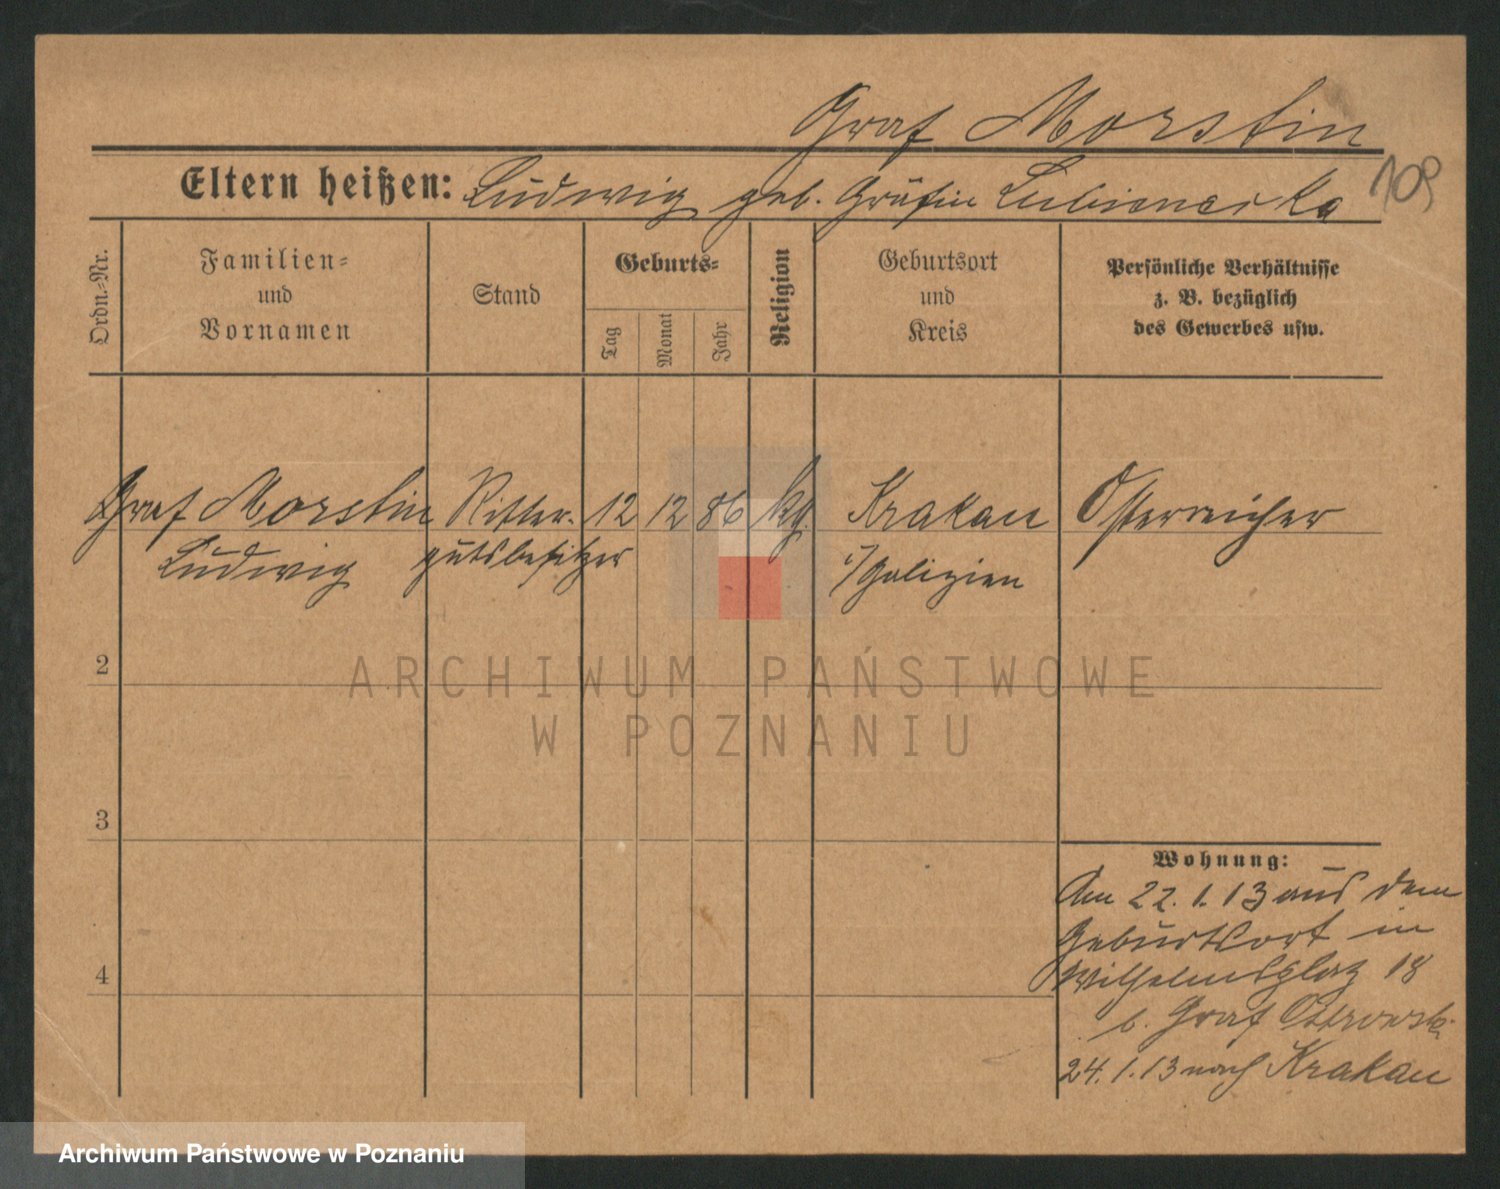 Graf Morstin
109
Eltern heißen: Ludwig geb. Gräfin Lubienska
Ordn.-Nr.
Familien-
und
Vornamen
Stand
Geburts-
Tag
Monat
Jahr
Religion
Geburtsort
und
Kreis
Persönliche Verhältnisse
z. B. bezüglich
des Gewerbes usw.
Graf Morstin Ritter- 12 12 86 kth. Krakau Österreicher
Ludwig gutsbesitzer i/Galizien
2
3
4
Wohnung:
Am 22.1.13 aus dem
Geburtsort in
Wilhelmsplatz 18
b. Graf Ostrowski
24.1.13 nach Krakau
ARCHIWUM PAŃSTWOWE
W POZNANIU
Archiwum Państwowe w Poznaniu